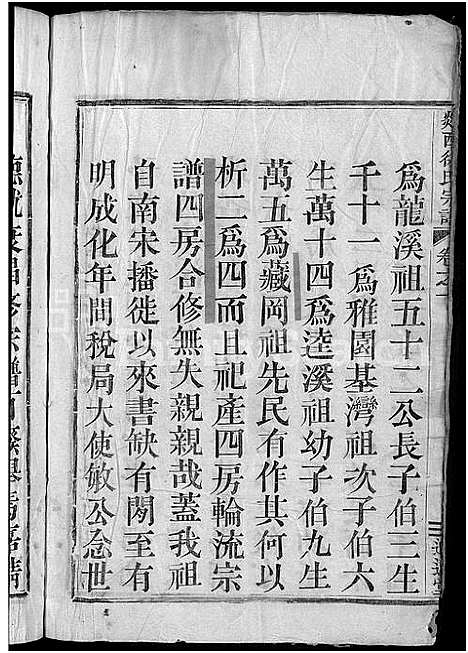 爲龍溪祖五十二公長子伯三生
千十一爲雅園基灣祖次子伯六
生萬十四爲逵溪祖幼子伯九生
萬五爲藏岡祖先民有作其何以
析二爲四而且祀產四房輪流宗
譜四房合修無失親親哉蓋我祖
自南宋播徙以來書缺有閟至有
明成化年間稅局大使敏公念世